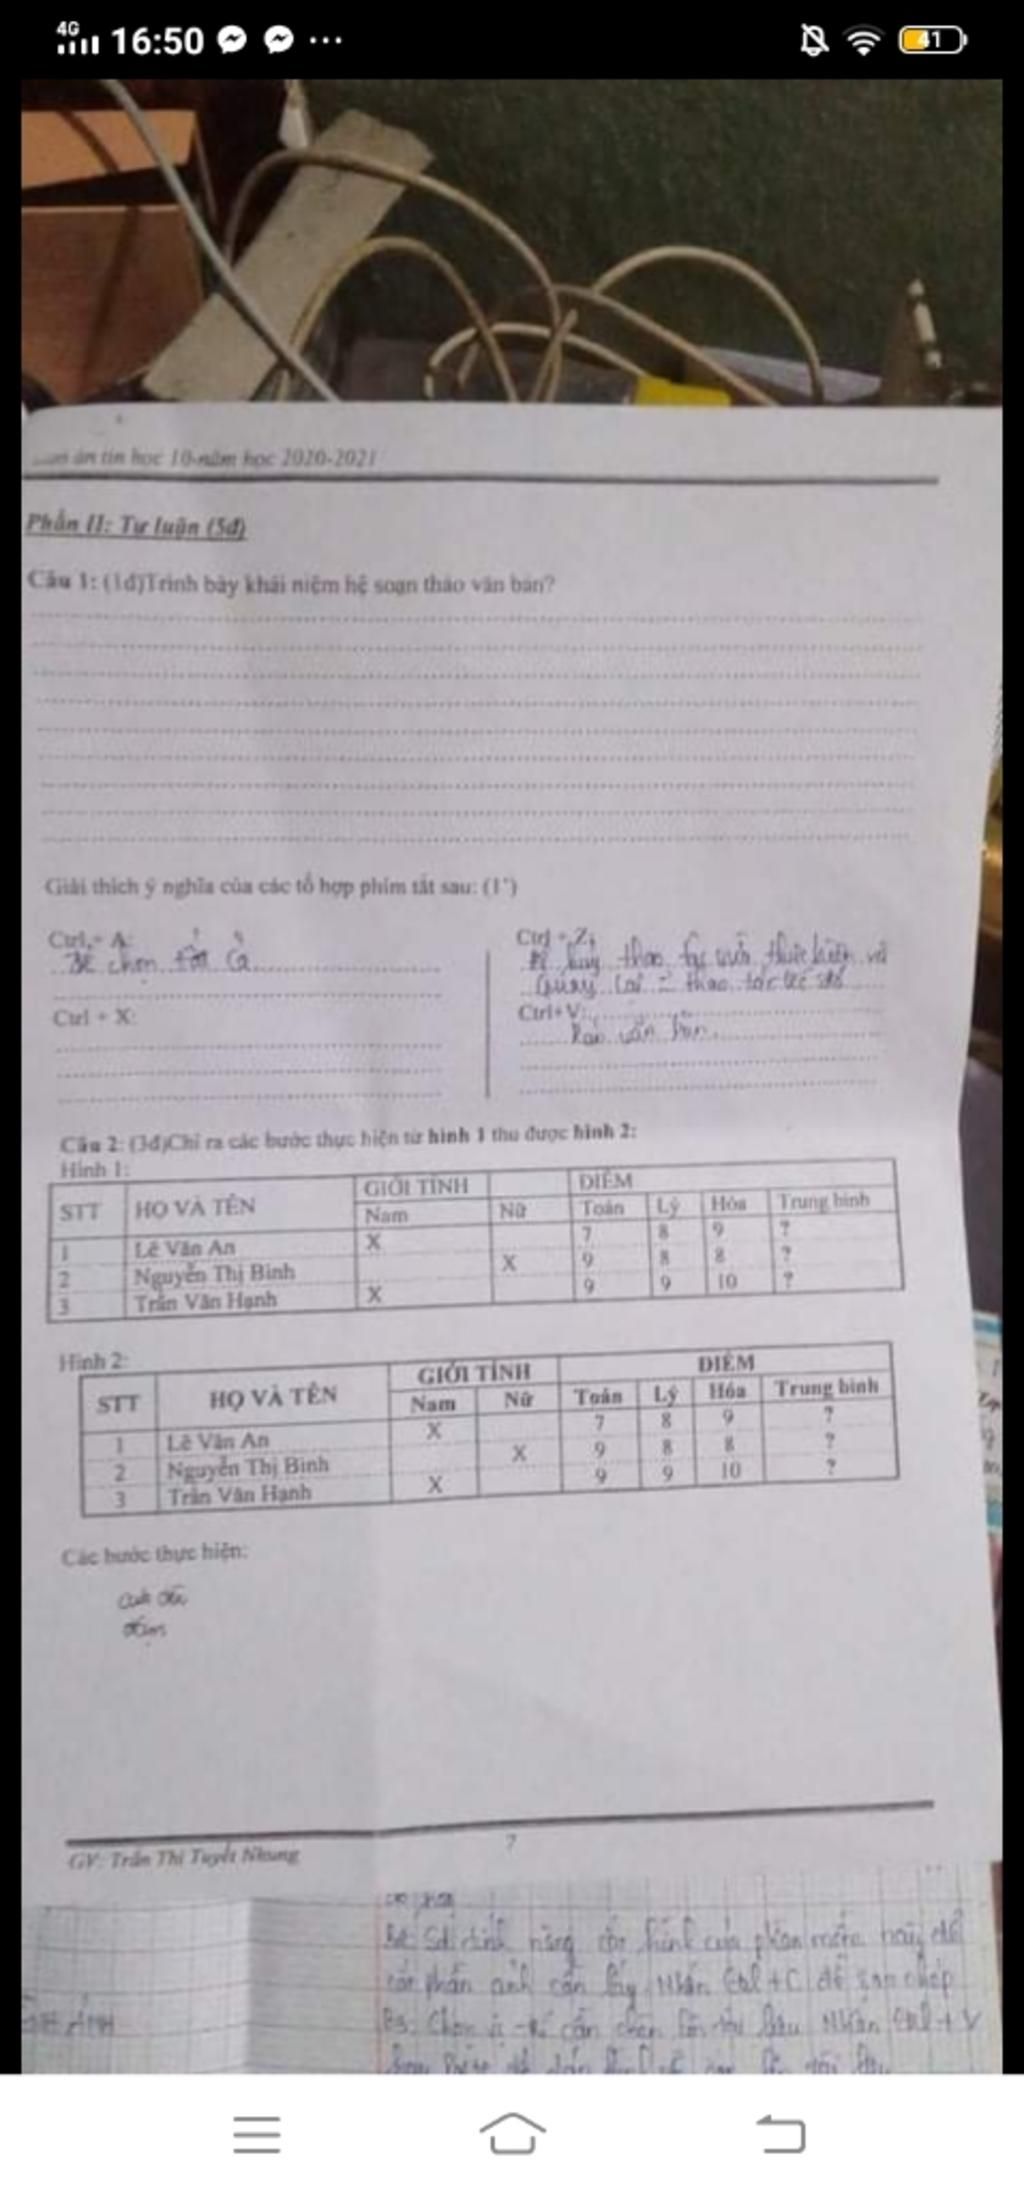 4G 16:50 41
án tin học 10-năm học 2020-2021
Phần II: Tự luận (5đ)
Câu 1: (1đ)Trình bày khái niệm hệ soạn thảo văn bản?
Giải thích ý nghĩa của các tổ hợp phím tắt sau: (1')
Ctrl + A:
Để chọn tất cả
Ctrl + X:
Ctrl + Z:
Để hủy thao tác vừa thực hiện và
quay lại thao tác
Ctrl+V:
văn bản.
Câu 2: (3đ)Chỉ ra các bước thực hiện từ hình 1 thu được hình 2:
Hình 1:
STT HỌ VÀ TÊN GIỚI TÍNH ĐIỂM
Nam Nữ Toán Lý Hóa Trung bình
1 Lê Văn An X 7 8 9 ?
2 Nguyễn Thị Bình X 9 8 8 ?
3 Trần Văn Hạnh X 9 9 10 ?
Hình 2:
STT HỌ VÀ TÊN GIỚI TÍNH ĐIỂM
Nam Nữ Toán Lý Hóa Trung bình
1 Lê Văn An X 7 8 9 ?
2 Nguyễn Thị Bình X 9 8 8 ?
3 Trần Văn Hạnh X 9 9 10 ?
Các bước thực hiện:
7
GV: Trần Thị Tuyết Nhung
năng hình của phần mềm để
phần ảnh cần lấy Nhấn Ctrl+C để sao chép
B3: Chọn vị trí cần chèn Nhấn Ctrl+V